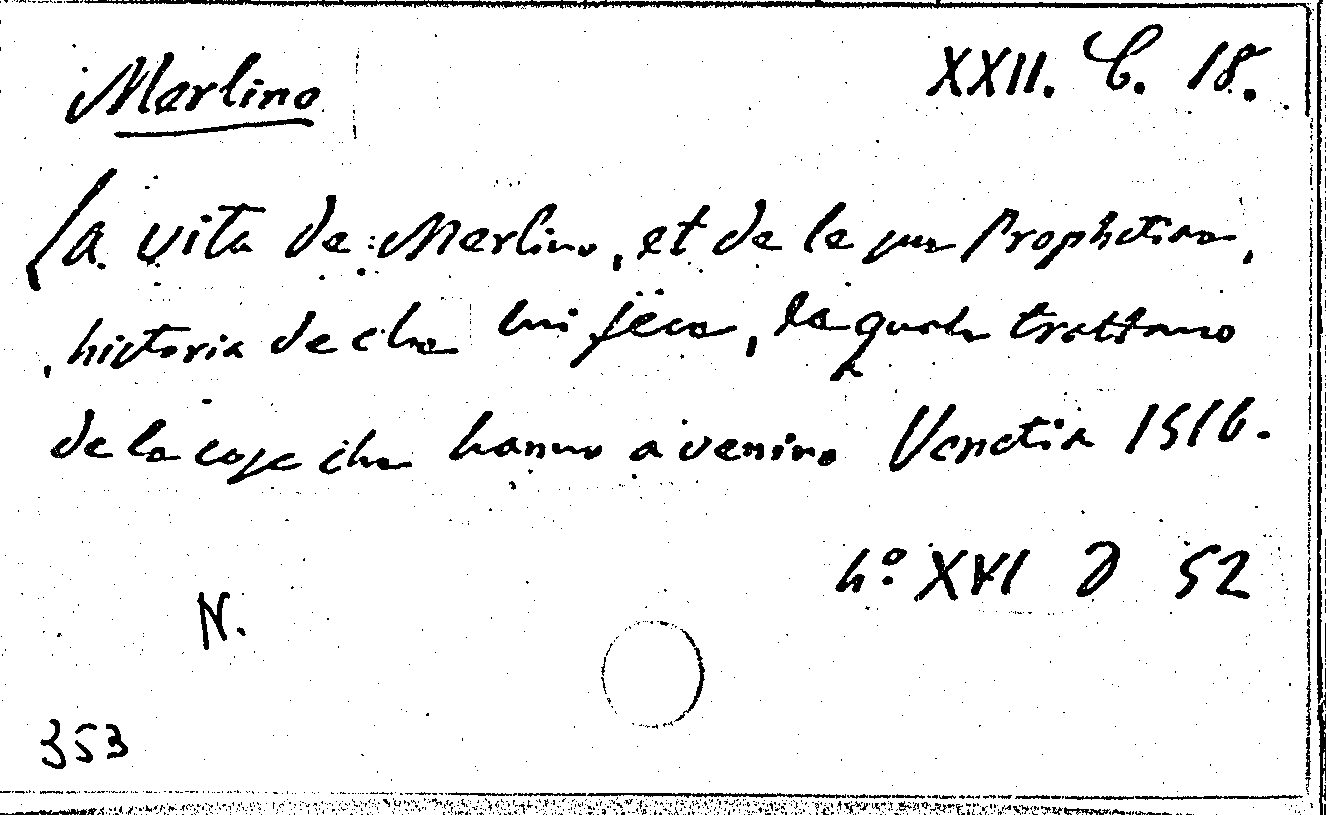 Merlino XXII. C. 18.
La vita de Merlino, et de le sue Prophetie,
historia de che lui fece, la quale trattano
de la cose che hanno a venire Venetia 1516.
4.º XVI D 52
N.
353